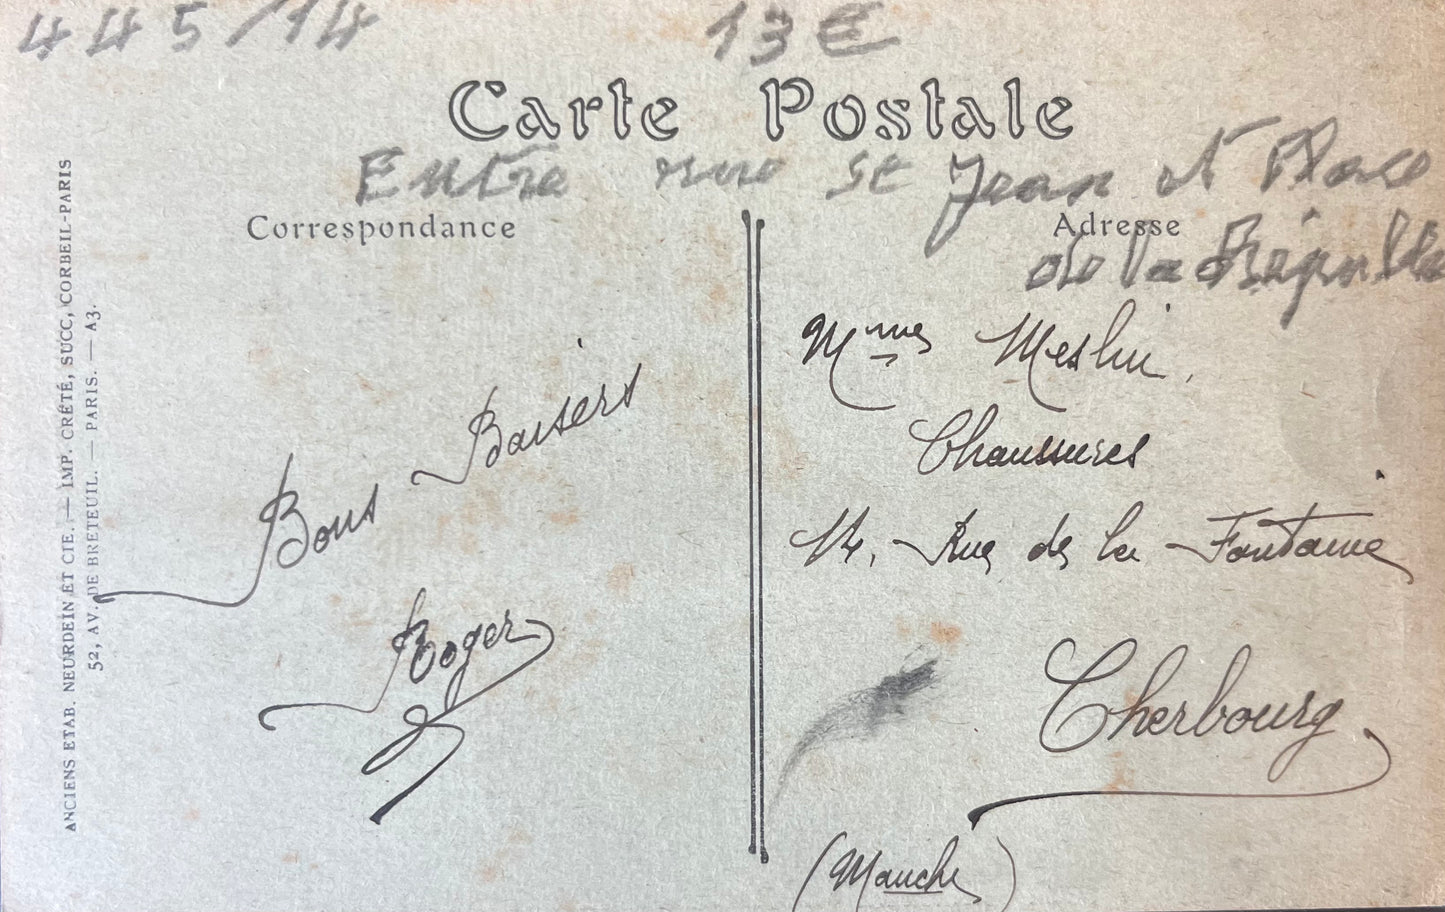 445/14
13€
Carte Postale
Entre rue St Jean et Place
de la Républ
Correspondance
Adresse
ANCIENS ETAB. NEURDEIN ET CIE. — IMP. CRÉTÉ, SUCC, CORBEIL-PARIS
52, AV. DE BRETEUIL. — PARIS. — A3.
Bons Baisers
Roger
Mmes Meslin,
Chaussures
14, Rue de la Fontaine
Cherbourg
(Manche)